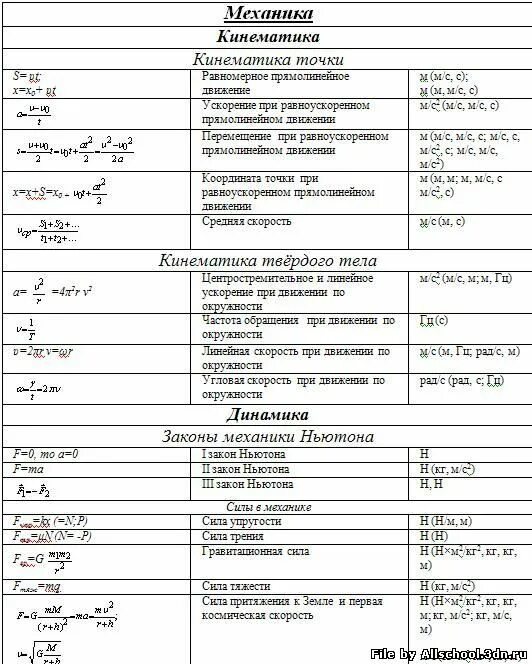 Механика
Кинематика
Кинематика точки
S= υt; Равномерное прямолинейное м (м/с, с);
x=x₀+ υt движение м (м, м/с, с)
a=(υ-υ₀)/t Ускорение при равноускоренном м/с² (м/с, м/с, с)
прямолинейном движении
s=(υ+υ₀)/2 t=υ₀t+at²/2=(υ²-υ₀²)/2a Перемещение при равноускоренном м (м/с, м/с, с; м/с, с,
прямолинейном движении м/с², с; м/с, м/с,
м/с²)
x=x+S=x₀ + υ₀t+at²/2 Координата точки при м (м, м; м, м/с, с
равноускоренном прямолинейном м/с², с)
движении
υср=(S₁+S₂+...)/(t₁+t₂+...) Средняя скорость м/с (м, с)
Кинематика твёрдого тела
a= υ²/r =4π²r ν² Центростремительное и линейное м/с² (м/с, м; м, Гц)
ускорение при движении по
окружности
ν=1/T Частота обращения при движении по Гц (с)
окружности
υ=2πr ν=ωr Линейная скорость при движении по м/с (м, Гц; рад/с, м)
окружности
ω=γ/t=2πν Угловая скорость при движении по рад/с (рад, с; Гц)
окружности
Динамика
Законы механики Ньютона
F=0, то a=0 I закон Ньютона Н
F=ma II закон Ньютона Н (кг, м/с²)
F⃗₁=-F⃗₂ III закон Ньютона Н, Н
Силы в механике
Fупр=kx (=N;P) Сила упругости Н (Н/м, м)
Fтр=μN (N= -P) Сила трения Н (Н)
Fгр=G m₁m₂/r² Гравитационная сила Н (Н×м²/кг², кг, кг,
м)
Fтяж=mg Сила тяжести Н (кг, м/с²)
F=G mM/(r+h)²=ma=mυ²/(r+h); Сила притяжения к Земле и первая Н (Н×м²/кг², кг, кг,
космическая скорость м; кг, м/с²; кг, м/с,
м)
υ=√(G M/(r+h)) м/с (Н×м²/кг², кг,
File by Allschool.3dn.ru